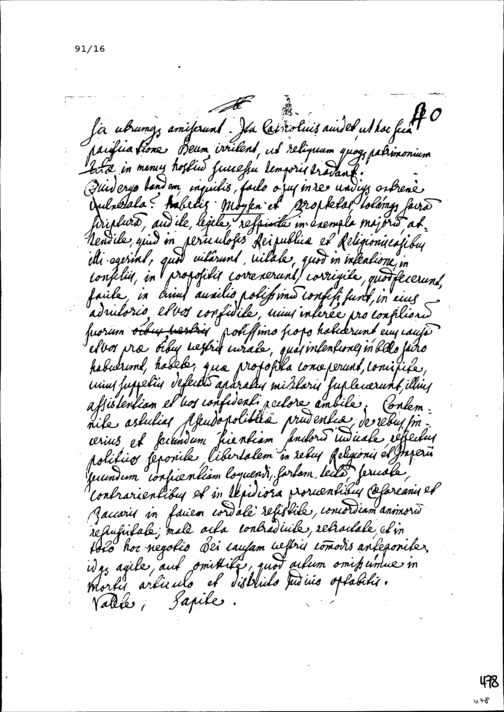 91/16
40
sic utrumque amiserunt. Ita Catholicis audet, ut hac sua
pacificatione Deum irritent, et reliquum quoque patrimonium
in manus hostium successu temporis tradant.
Quid ergo tandem inquitis, facto opus in re undique extreme
Habetis Moysen et Prophetas totamque sacram
scripturam, audite, legite, respicite in exempla majorum at-
tendite, quid in periculosis Reipublicae et Religionis casibus
illi egerint, quod vitarunt, vitate, quod in intentione, in
consiliis, in propositis corrigite, quod fecerunt,
facite, in cuius auxilio potissimum confisi sunt, in eius
adiutorio, et vos confidite, cuius interea pro
suorum potissimo scopo habuerunt eius causa
et vos prae vestris curate, quas intentiones in bello sacro
habuerunt, habete, quae proposita conceperunt, concipite,
cuius suppetiis defectum apparatus militaris supleverunt, illius
assistentiam et vos confidenti pectore ambite. Contem-
nite astutias prudentiae, de rebus sin-
cerius et secundum scientiam sanctorum iudicate respectus
politicos seponite libertatem in rebus Religionis et Imperii
secundum conscientiam loquendi, sartam tectam servate,
contrarientibus et in tepidiora Caesareanis et
Bavaris in faciem cordate resistite, concordiam animorum
male acta contradicite, retractate, et in
toto hoc negotio Dei causam vestris comodis anteponite,
idque agite, aut omittite, quod actum omissumve in
mortis articulo et districto iudicio optabitis.
Valete, Sapite.
478
478